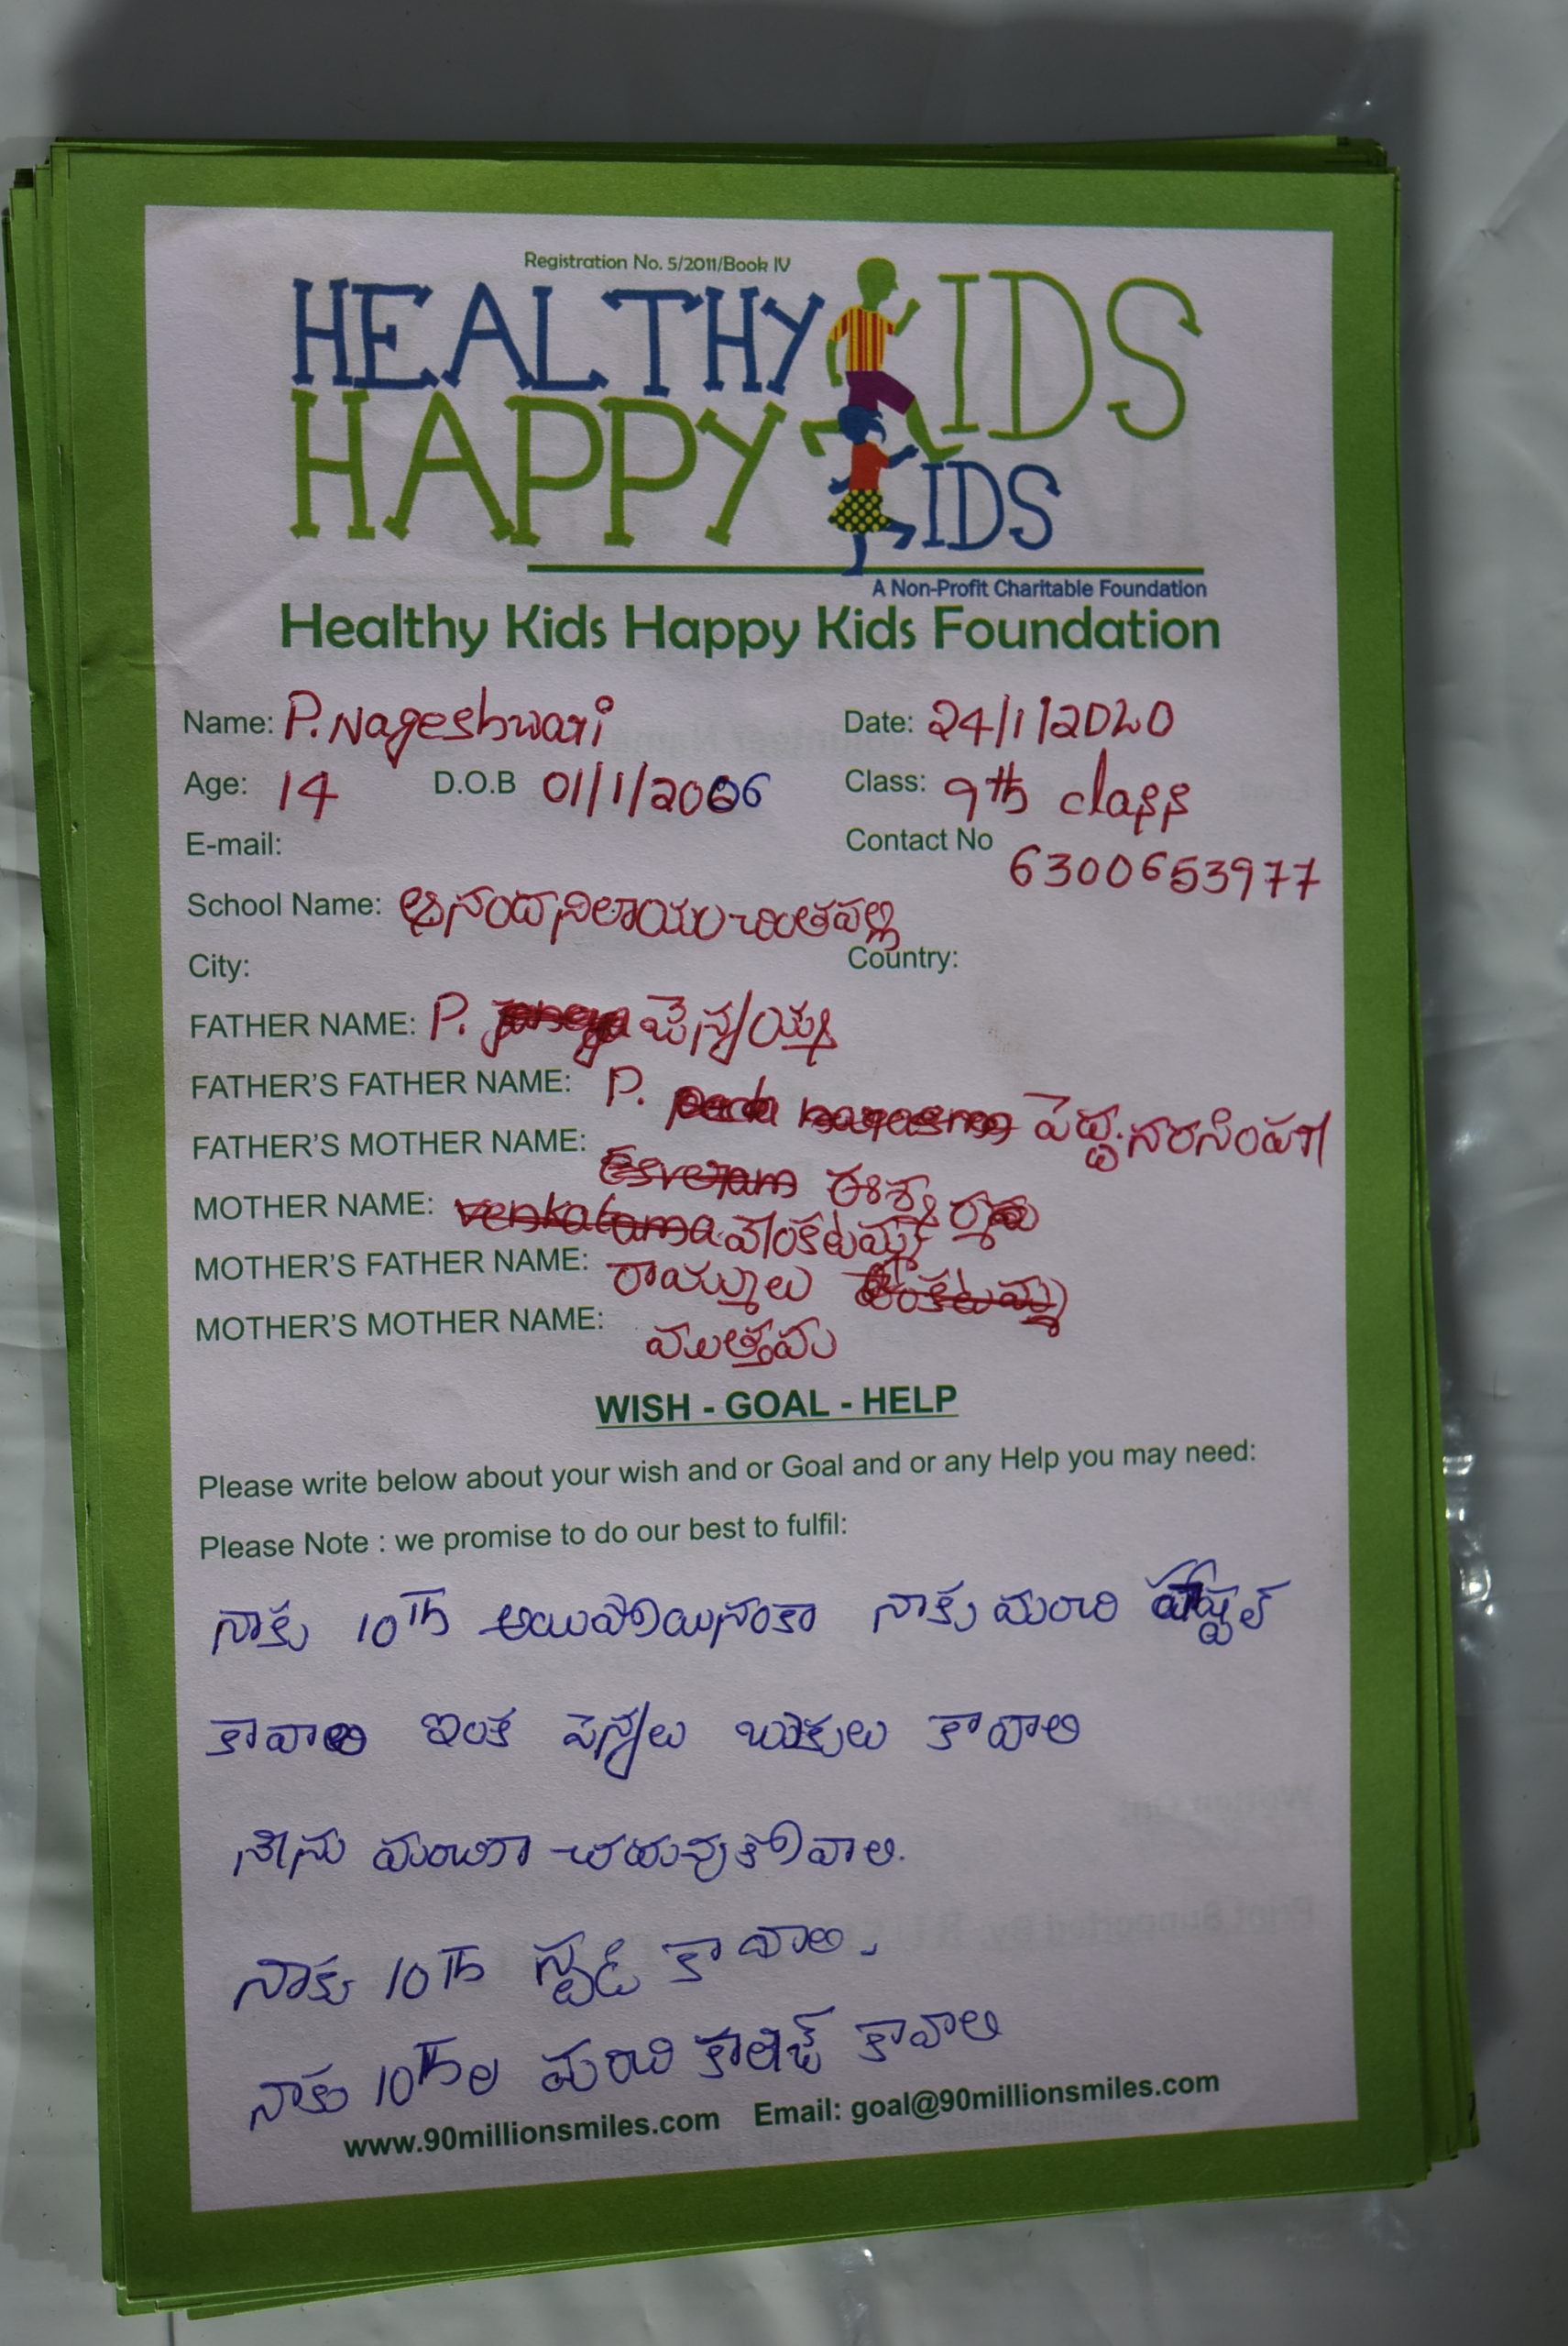 Registration No. 5/2011/Book IV
HEALTHY KIDS
HAPPY KIDS
A Non-Profit Charitable Foundation
Healthy Kids Happy Kids Foundation
Name: P. Nageshwari Date: 24/1/2020
Age: 14 D.O.B 01/1/2006 Class: 9th class
E-mail: Contact No 6300653977
School Name: ఆనందానిలాయం చింతపల్లి
City: Country:
FATHER NAME: P. పెన్నయ్య
FATHER'S FATHER NAME: P. పెద్ద. నరసింహా
FATHER'S MOTHER NAME:
MOTHER NAME: వెంకటమ్మ
MOTHER'S FATHER NAME: రాయ్ములు
MOTHER'S MOTHER NAME: ముత్తమ
WISH - GOAL - HELP
Please write below about your wish and or Goal and or any Help you may need:
Please Note : we promise to do our best to fulfil:
నాకు 10Th అయిపోయినంకా నాకు మంచి హాష్టల్
కావాలి ఇంక పెన్నులు బుకులు కావాలి
నేను మంచిగా చదువుకోవాలి.
నాకు 10Th స్టడీ కావాలి.
నాకు 10Thల మంచి కాలేజ్ కావాలి
www.90millionsmiles.com Email: goal@90millionsmiles.com